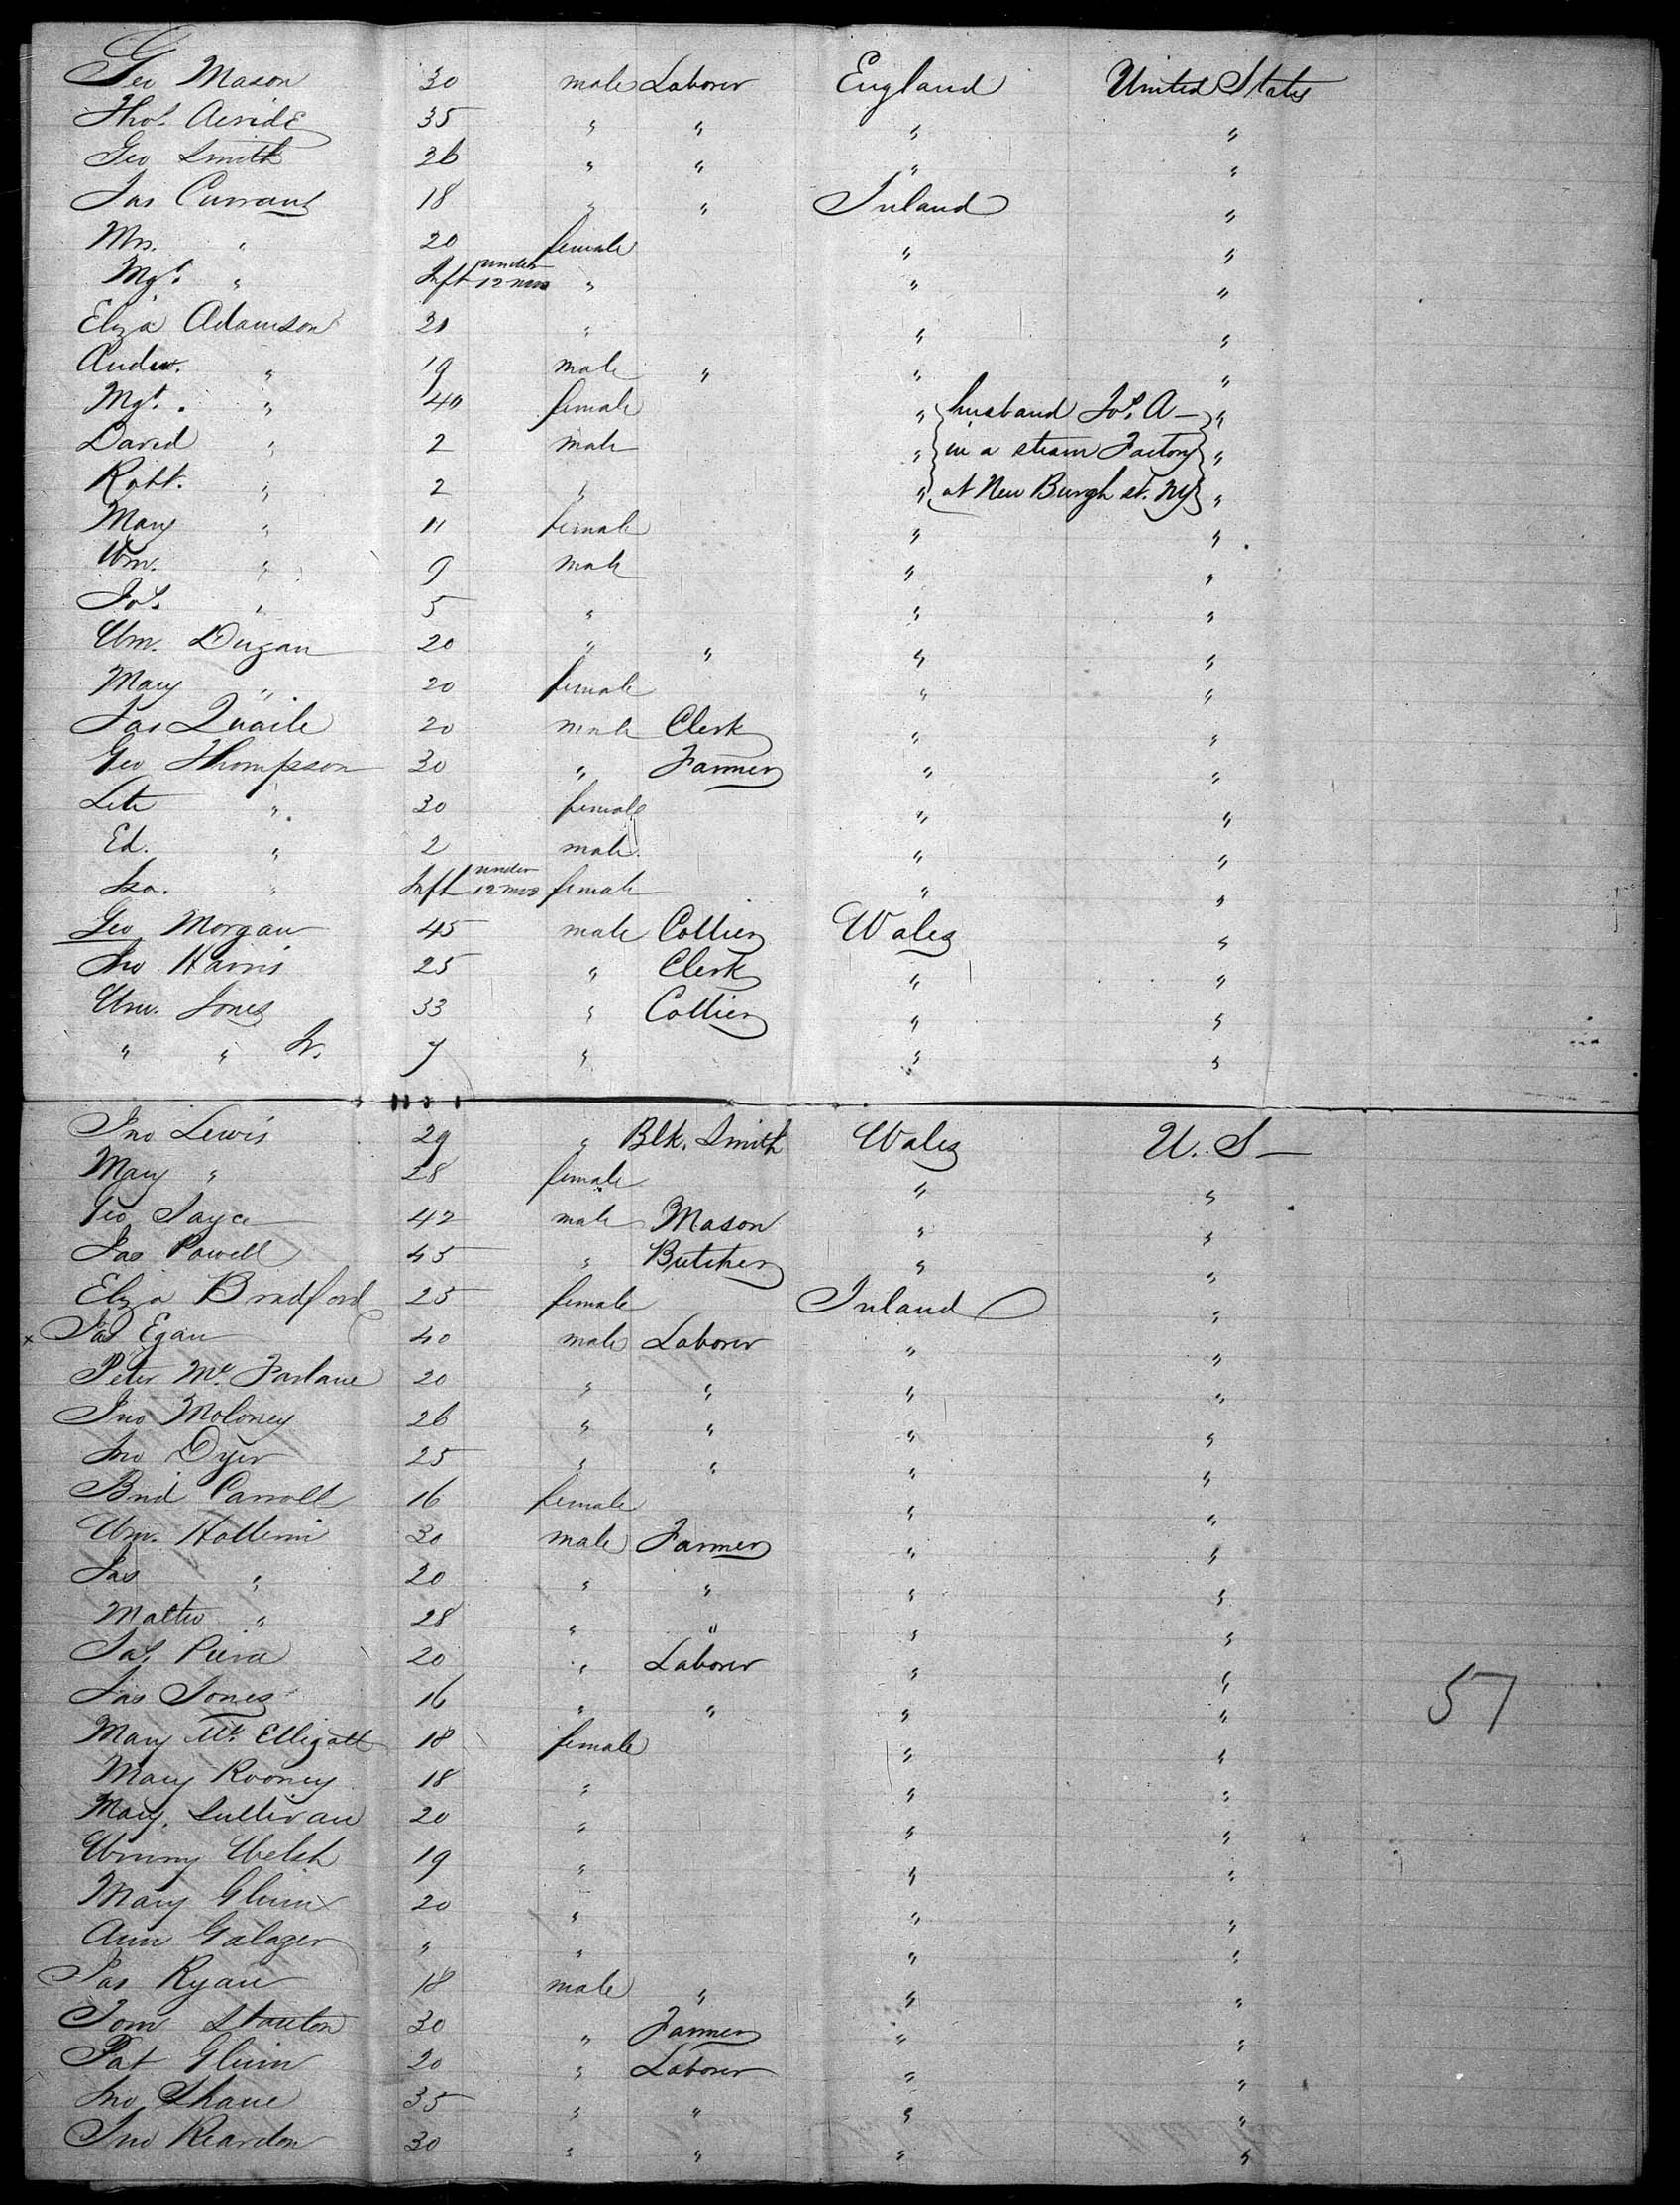 Geo Mason 30 male Laborer England United States
Thos. 35 " " " "
Geo Smith 26 " " " "
Jas Currans 18 " " Ireland "
Mrs. " 20 female " "
Mgt. " Inft under 12 mos " " "
Eliza Adamson 21 " " "
Andw. " 19 male " " "
Mgt. " 40 female " husband Jos. A— "
David " 2 male " in a steam Factory "
Robt. " 2 " " at New Burgh st. NY "
Mary " 11 female " "
Wm. " 9 male " "
Jos. " 5 " " "
Wm. Dugan 20 " " " "
Mary " 20 female " "
Jas Quaile 20 male Clerk " "
Geo Thompson 30 " Farmer " "
" 30 female " "
Ed. " 2 male " "
Isa. " Inft under 12 mos female " "
Geo Morgan 45 male Collier Wales "
Jno Harris 25 " Clerk " "
Wm. Jones 33 " Collier " "
" " Jr. 7 " " "
Jno Lewis 29 " Blk. Smith Wales U. S—
Mary " 28 female " "
Geo Sayce 42 male Mason " "
Jas Powell 45 " Butcher " "
Eliza Bradford 25 female Ireland "
x Pat Egan 40 male Laborer " "
Peter Mc. Farlane 20 " " " "
Jno Moloney 26 " " " "
Jno Dyer 25 " " " "
Brid Carroll 16 female " "
Wm. 30 male Farmer " "
Jas " 20 " " " "
Mattw " 28 " " " "
20 " Laborer " "
Jas Jones 16 " " " "
Mary Mc. Elligatt 18 female " "
Mary Rooney 18 " " "
Mary Sullivan 20 " " "
Winny Welsh 19 " " "
Mary Glinn 20 " " "
Ann Galager " " " "
Pat Ryan 18 male " " "
Tom Stanton 30 " Farmer " "
Pat Glinn 20 " Laborer " "
Jno Shane 35 " " " "
Jno Reardon 30 " " " "
57